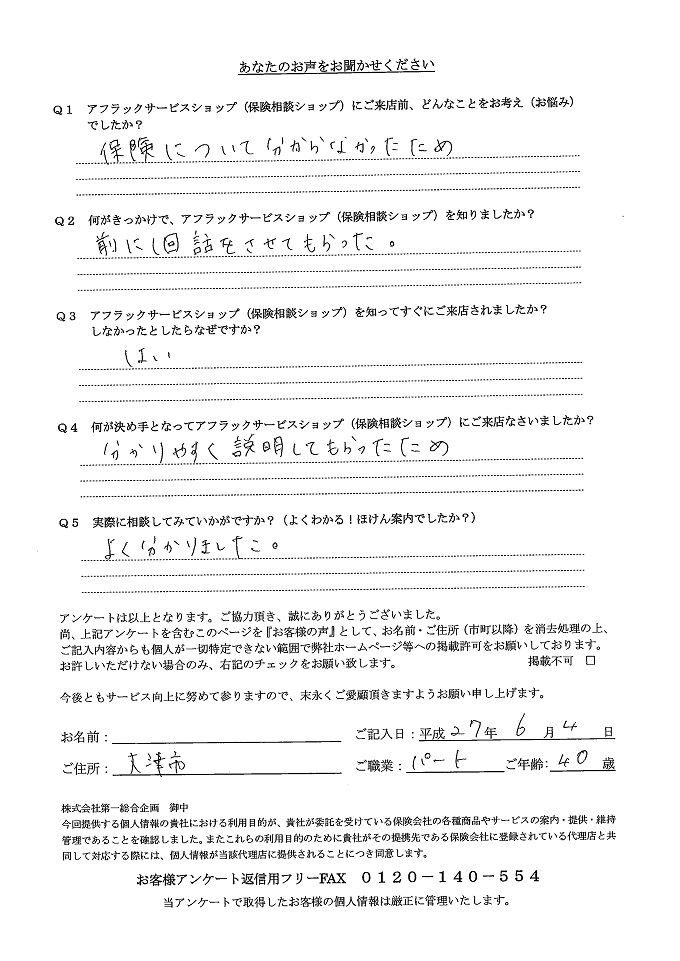 あなたのお声をお聞かせください
Q1 アフラックサービスショップ（保険相談ショップ）にご来店前、どんなことをお考え（お悩み）
でしたか？
保険について分からなかったため
Q2 何がきっかけで、アフラックサービスショップ（保険相談ショップ）を知りましたか？
前に1回話をさせてもらった。
Q3 アフラックサービスショップ（保険相談ショップ）を知ってすぐにご来店されましたか？
しなかったとしたらなぜですか？
はい
Q4 何が決め手となってアフラックサービスショップ（保険相談ショップ）にご来店なさいましたか？
分かりやすく説明してもらったため
Q5 実際に相談してみていかがですか？（よくわかる！ほけん案内でしたか？）
よく分かりました。
アンケートは以上となります。ご協力頂き、誠にありがとうございました。
尚、上記アンケートを含むこのページを『お客様の声』として、お名前・ご住所（市町以降）を消去処理の上、
ご記入内容からも個人が一切特定できない範囲で弊社ホームページ等への掲載許可をお願いしております。
お許しいただけない場合のみ、右記のチェックをお願い致します。 掲載不可 □
今後ともサービス向上に努めて参りますので、末永くご愛顧頂きますようお願い申し上げます。
お名前： ご記入日：平成27年 6月 4日
ご住所： 大津市 ご職業：パート ご年齢：40歳
株式会社第一総合企画 御中
今回提供する個人情報の貴社における利用目的が、貴社が委託を受けている保険会社の各種商品やサービスの案内・提供・維持
管理であることを確認しました。またこれらの利用目的のために貴社がその提携先である保険会社に登録されている代理店と共
同して対応する際には、個人情報が当該代理店に提供されることにつき同意します。
お客様アンケート返信用フリーFAX 0120－140－554
当アンケートで取得したお客様の個人情報は厳正に管理いたします。